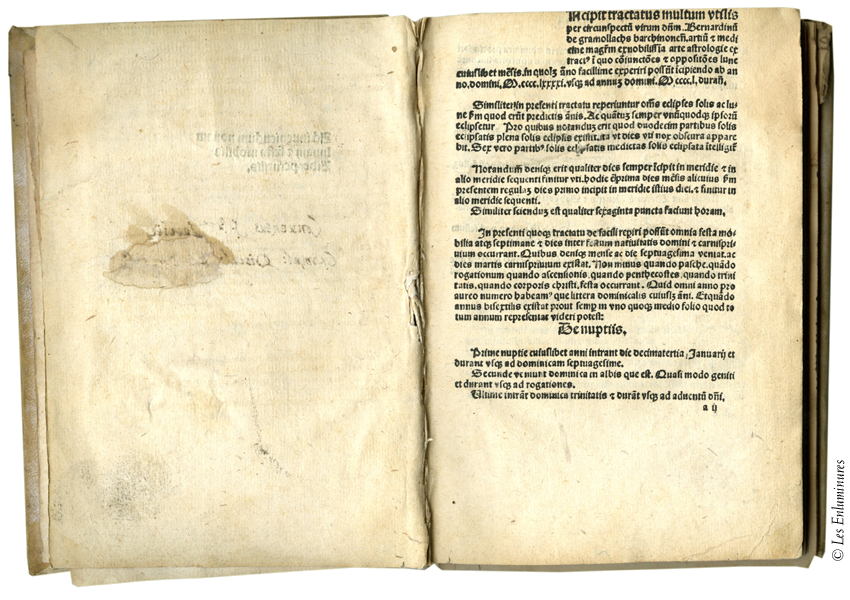 Incipit tractatus multum vtilis
per circunspectū virum dn̄m. Bernardinū
de gramollachs barchinonen̄. artiū & medi
cine magr̄m exnobilissīa arte astrologie ex
tract⁹ ī quo cōiunctōes & oppositōes lune
cuiuslibet mēsis. in quolꝫ āno facillime experiri possūt īcipiendo ab an
no. domini. M. cccc. lxxxxi. vsqꝫ ad annuꝫ domini. M. cccc. l. duran̄.
Similiter in presenti tractatu reperiuntur om̄s eclipses solis ac lu-
ne ẜm quod erūt predictis ānis. Ac quātuꝫ semper vnūquodqꝫ ipsorū
eclipsetur Pro quibus notanduꝫ erit quod duodecim partibus solis
eclipsatis plena solis eclipsis existit. ita vt dies vti nox obscura appare
bit. Sex vero partib⁹ solis eclipsatis medietas solis eclipsata ītelligit̄
Notandum deniqꝫ erit qualiter dies semper īcipit in meridie & in
alio meridie sequenti finitur vti. hodie ē prima dies mēsis alicuius ẜm
presentem regulaꝫ dies primo incipit in meridie istius diei. & finitur in
alio meridie sequenti.
Similiter sciendum est qualiter sexaginta puncta faciunt horam.
In presenti quoqꝫ tractatu de facili repiri possūt omnia festa mo
bilia atqꝫ septimane & dies inter festum natiuitatis domini & carnispri
uium occurrant. Quibus deniqꝫ mense ac die septuagesima veniat. ac
dies martis carnispriuium existat. Non minus quando pasche. quādo
rogationum quando ascensionis. quando penthecostes. quando trini
tatis. quando corporis christi. festa occurrant. Quid omni anno pro
aureo numero habeam⁹ que littera dominicalis cuiuslꝫ āni. Et quādo
annus bisextilis existat prout semp in vno quoqꝫ medio folio quod to
tum annum representat videri potest:
De nuptiis.
Prime nuptie cuiuslibet anni intrant die decimatertia Januarij et
durant vsqꝫ ad dominicam septuagesime.
Secunde veniunt dominica in albis que est. Quasi modo geniti
et durant vsqꝫ ad rogationes.
Ultime intrāt dominica trinitatis & durāt vsqꝫ ad aduentū dn̄i.
a ij
© Les Enluminures